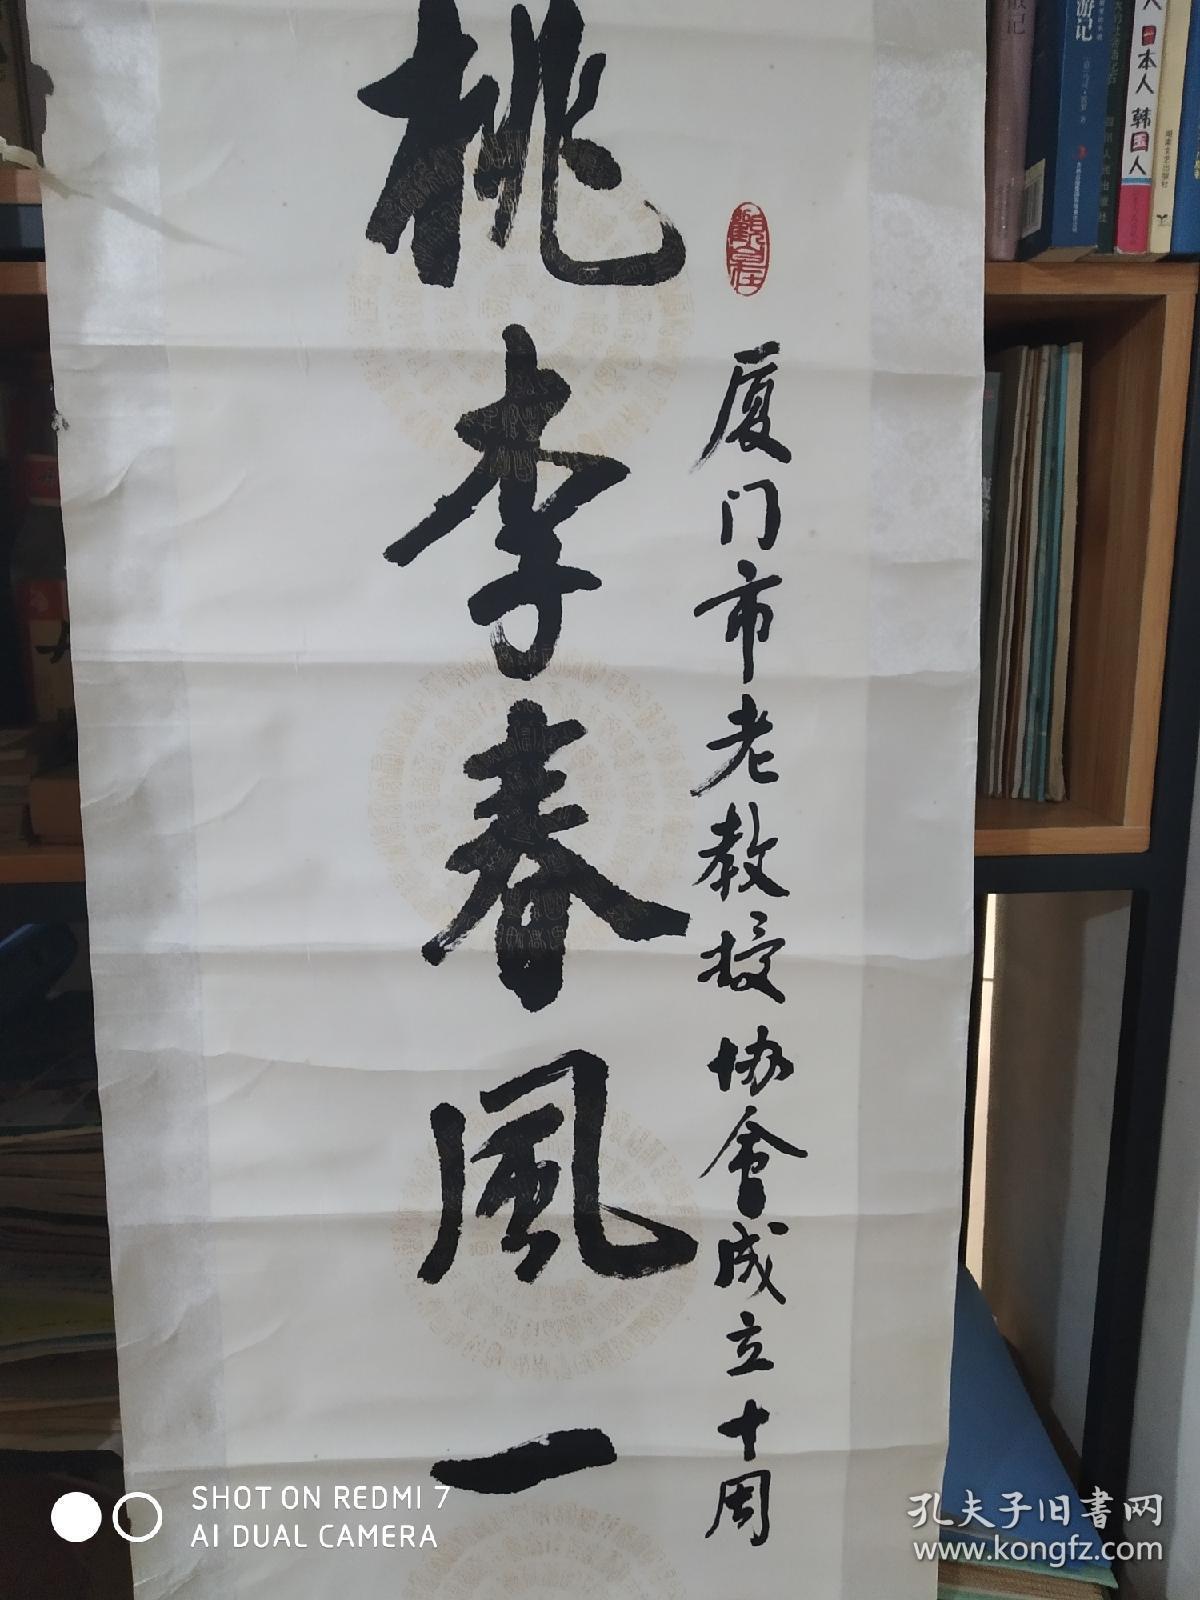 桃李春风一
厦门市老教授协会成立十周
游记
散记
人日本人韩国人
SHOT ON REDMI 7
AI DUAL CAMERA
孔夫子旧書网
www.kongfz.com